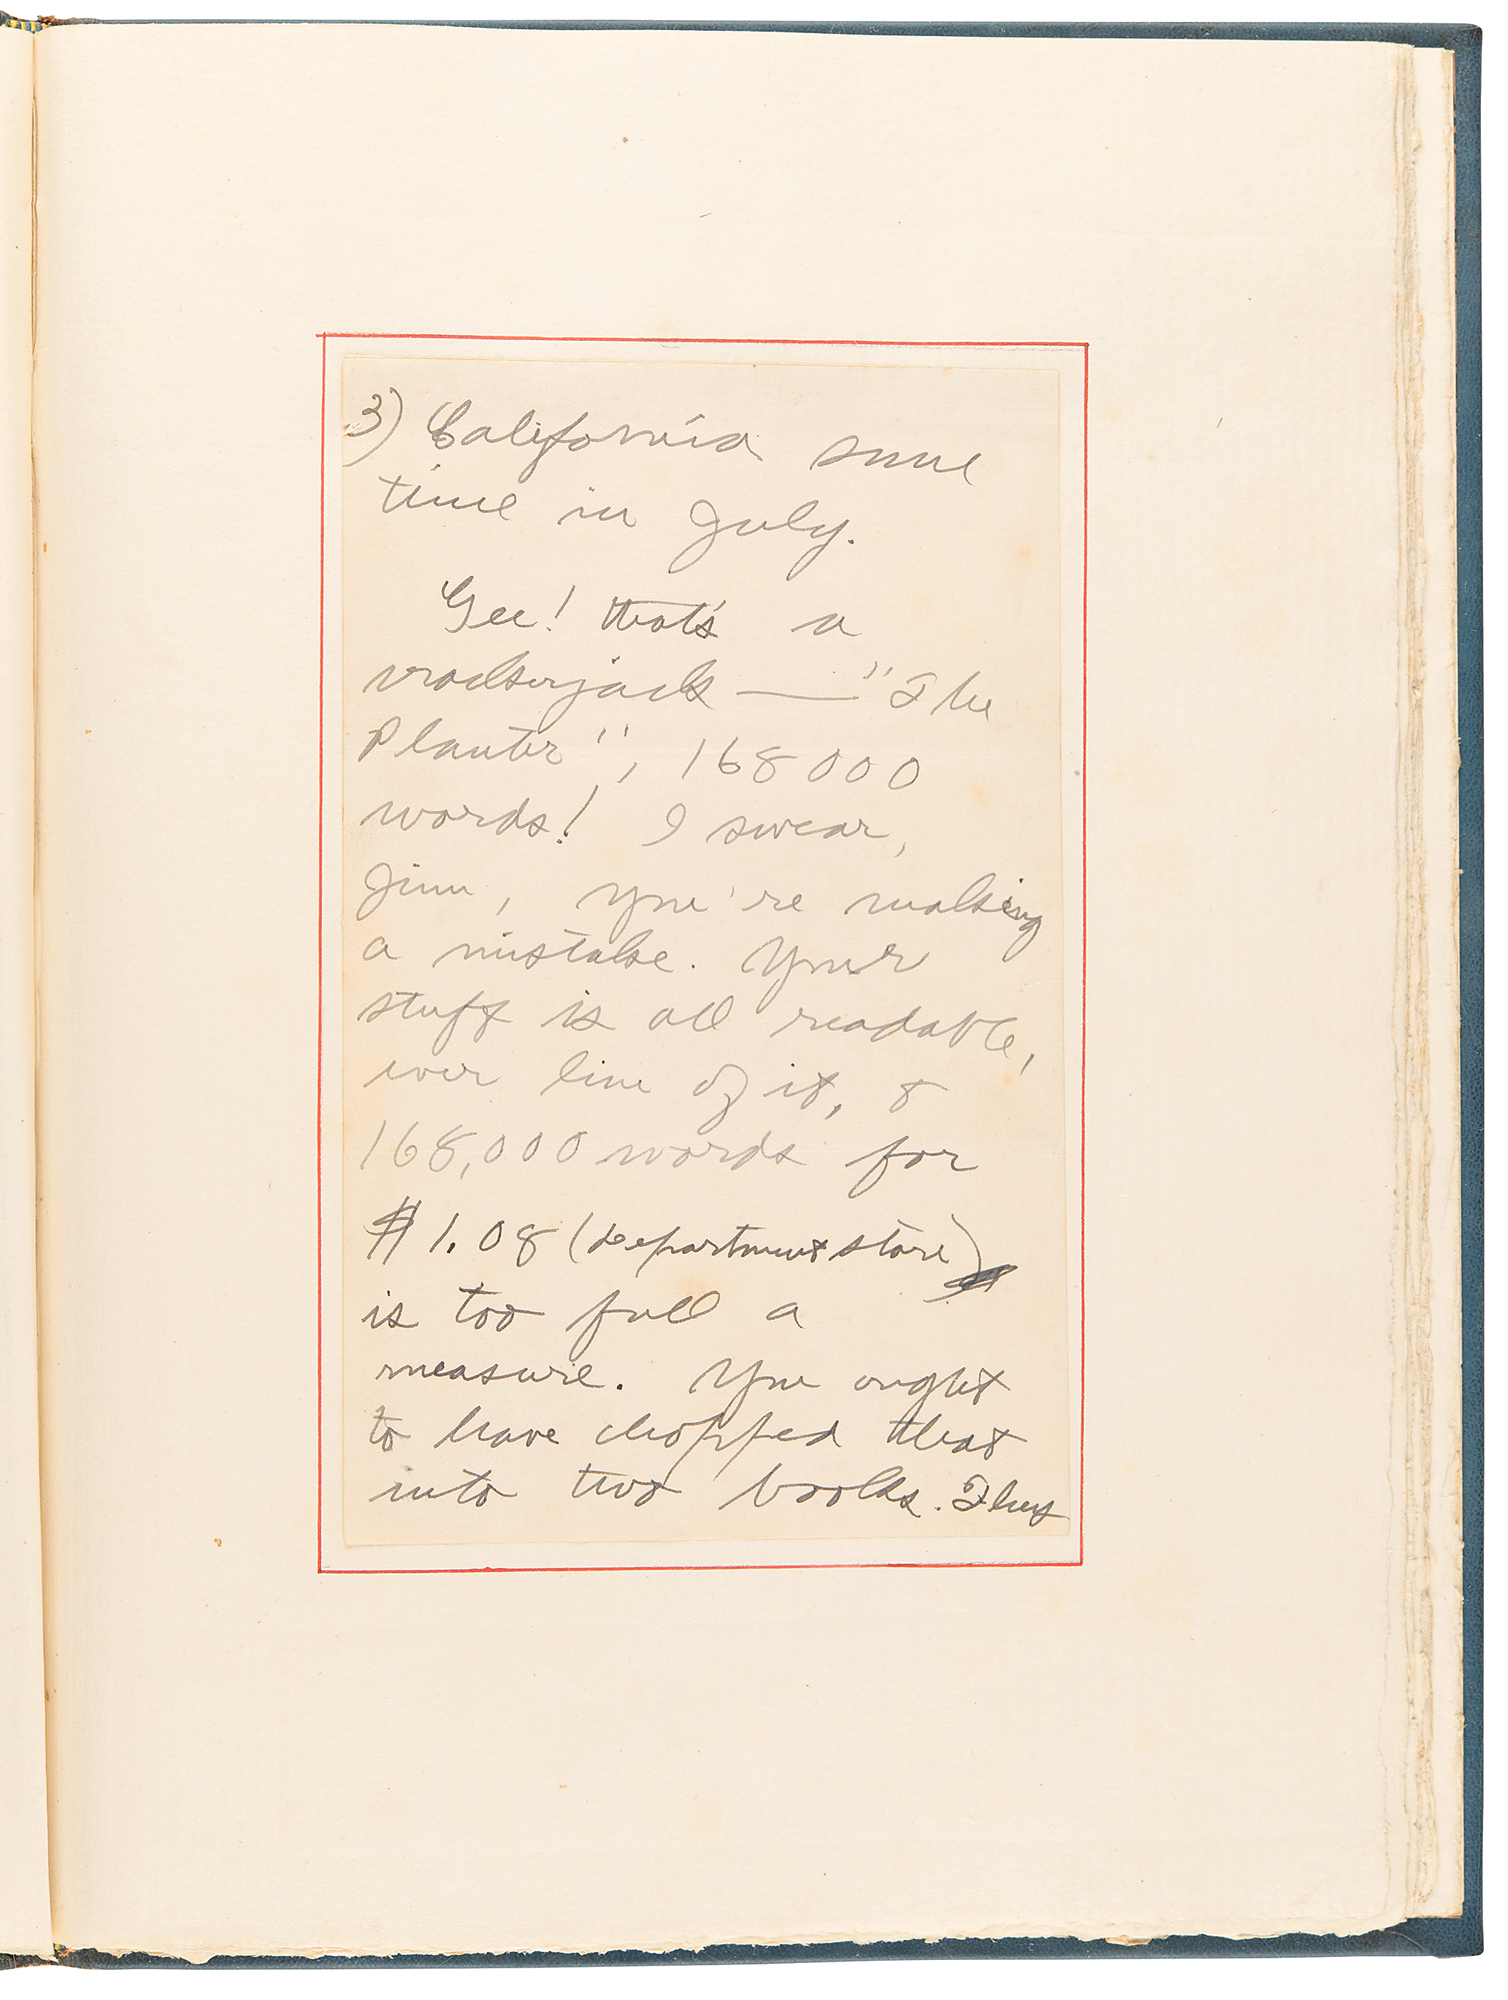 3) California some
time in July.
Gee! that's a
crackerjack — "The
Planter", 168000
words! I swear,
Jim, you're making
a mistake. Your
stuff is all readable,
ever line of it, &
168,000 words for
$1.08 (department store)
is too full a
measure. You ought
to have chopped that
into two books. They